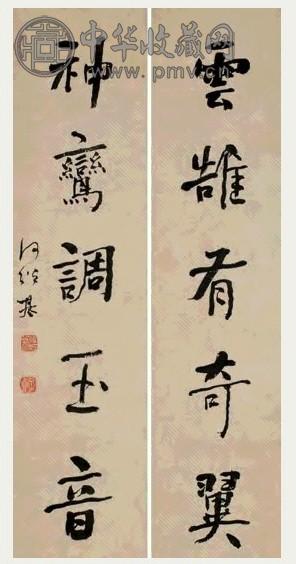 中华收藏网
www.pmv.cn
雲有奇翼
神鸞調玉音
何紹基